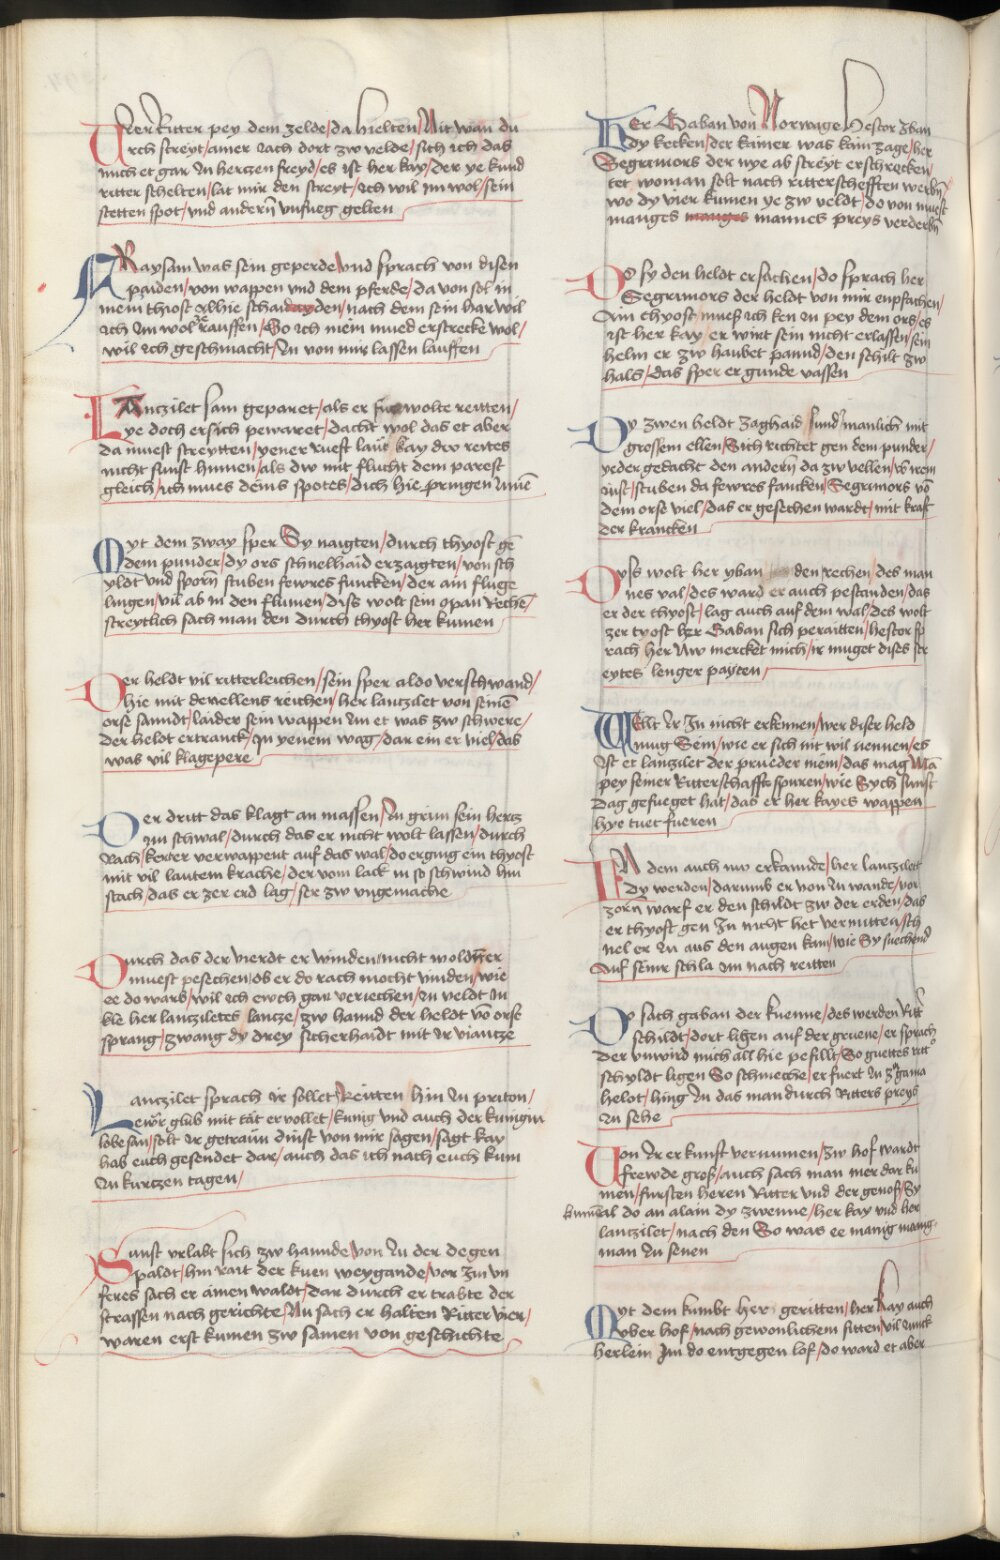 Vier Ritter pey dem zelde / da hielten / Mit wan du
rch streyt / ainer Rach dort zw velde / sich ich das
mich et gar In hertzen freyd / es ist her kay / der ye kund
ritter schelten / lat mir den streyt / Ich wil im wol / sein
stetten spot / vnd andern vnfueg gelten
Kaysam was sein geperde / Vnd sprach von disen
paiden / von wappen vnd dem pferde / da von sol in
mein thiost alhie schaiden / nach dem sein har wil
ich Im wol rauffen / So ich mein mued erstrecke wol /
wil ich geschmacht / In von mir lassen lauffen
Lantzilet sam geparet / als er wolte reitten /
ye doch er sich pewaret / dacht wol das et aber
da muest streytten / yener rueft laut kay drv reites
nicht sunst hinnen / als dw mit flucht dem parest
gleich / ich mues deins spotes / dich hie pringen Inne
Myt dem zway sper Sy naigten / durch thyost ge
dem punder / dy ors schnelhaid erzaigten / von sch
yldt vnd sporn stuben fewres funcken / der ain fluge
lingen / vil ab in den flumen / diss wolt sein span Reche /
streytlich sach man den durch thyost her kumen
Der heldt vil ritterleichen / sein sper aldo verschwand /
hie mit der ellens reichen / her lantzilet von seine
orse sanndt / laider sein wappen Im et was zw schwere /
der heldt ertranck / In yenem wag / dar ein er viel / das
was vil klagepere
Der dritt das klagt an massen / In grim sein hertz
Im schwal / durch das er nicht wolt lassen / durch
Rach / kerer verwappent auf das wal / do erging ein thyost
mit vil lautem krache / der vom lack in so schwind hin
stach / das er zer erd lag / ser zw vngemache
Durch das der vierdt er winden / nicht wolt er
muest pesechen / ob er do rach mocht vinden / wie
ee do warb / wil ich ewch gar veriechen / In veldt In
kle her lantziletes lantze / zw hannd der heldt vo orse
sprang / zwang dy drey sicherhaidt mit Ir viantze
Lantzilet sprach ir sollet / Reitten hin In priton /
Lewr glub mit tat er vollet / kunig vnd auch der kunigin
lobesan / solt Ir getraun dinst von mir sagen / sagt kay
hab euch gesendet dar / auch das ich nach euch kum
In kurtzen tagen /
Sunst vrlabt sich zw hannde / von In der degen
paldt / hin rait der kuen weygande / vor Im vn
feres sach er ainen waldt / dar durch er trabte der
strassen nach gerichte / Nu sach er halten Ritter vier /
waren erst kumen zw samen von geschichte
Her Gaban von Norwage Hestor Iban
dy kecken / der kainer was kain zage / her
Segramors der nye ab streyt erschrecken
tet woman solt nach ritterschefften werbn
wo dy vier kumen ye zw veldt / do von muest
manges manges mannes preys verderbn
Do sy den heldt ersachen / do sprach her
Segrimors der heldt von mir enpfachen /
Ain thyost / mueß ich ken In pey dem ors / es
ist her kay / er wirt sein nicht erlassen / sein
helm er zw haubet pannd / den schilt zw
hals / das sper er gunde vassen
Dy zwen heldt zaghaid / sund manlich mit
grossem ellen / Sich richtet gen dem punder /
yeder gedacht den andern da zw vellen /
stuben da fewres funcken / Segrimors vo
dem orse viel / das er gesechen wardt / mit kraft
der krancken
Dyss wolt her yban den rechen / des man
nes val / des ward er auch pestanden / das
er der thyost / lag auch auf dem wal / des wolt
zer tyost her Gaban sich peraitten / hestor sp
rach her Nw mercket mich / ir muget dises str
eytes lenger payten /
Welt Ir In nicht erkennen / wer diser held
mug Sein / wie er sich nit wil nennen / es
Ist et lantzilet der prueder mein / das mag Ma
pey seiner Ritterschafft spuren / wie Sych sunst
Dag gefueget hat / das er her kayes wappen
hye tuet fueren
In dem auch nw erkannde / her lantzilet
Dy werden / darumb er von In wande / vor
zorn warf er den schildt zw der erden / das
er thyost gen In nicht het vermitten / sch
nel er In aus den augen kam / wie Sy suechend
Auf seinr schla Im nach reitten
Do sach gaban der kuenne / des werden Ritt
schildt / dort ligen auf der gruene / er sprach
der vnwird mich all hie pefillt / So guettes ritt
schyldt ligen So schmeche / er fuert In zw gama
helot / hing In das man durch Ritters preys
In sehe
Von Ir er kunft vernumen / zw hof wardt
frewde groß / auch sach man mer dar ku
men / fursten heren Ritter vnd der genoß / Sy
kumen al do an alain dy zwenne / her kay vnd her
lantzilet / nach den So was ee manig mang
man In senen
Myt dem kumbt her geritten / her kay auch
vber hof / nach gewonlichem sitten / vil Junck
herlein Im do entgegen lof / do ward et aber